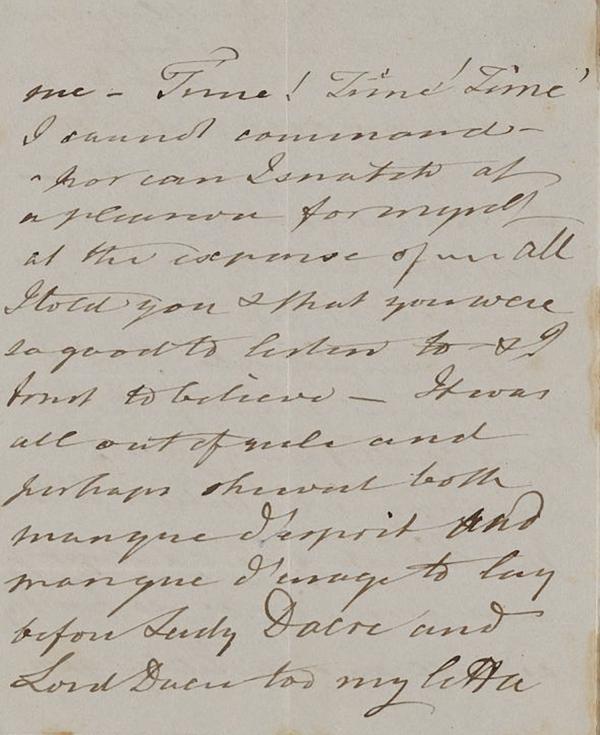 me – Time! Time! Time!
I cannot command –
nor can I snatch at
a pleasure for myself
at the expense of all
I told you & that you were
so good to listen to & I
trust to believe – It was
all out of rule and
perhaps shewed both
manque d'esprit and
manque d'usage to lay
before Lady Dacre and
Lord Dacre too my little